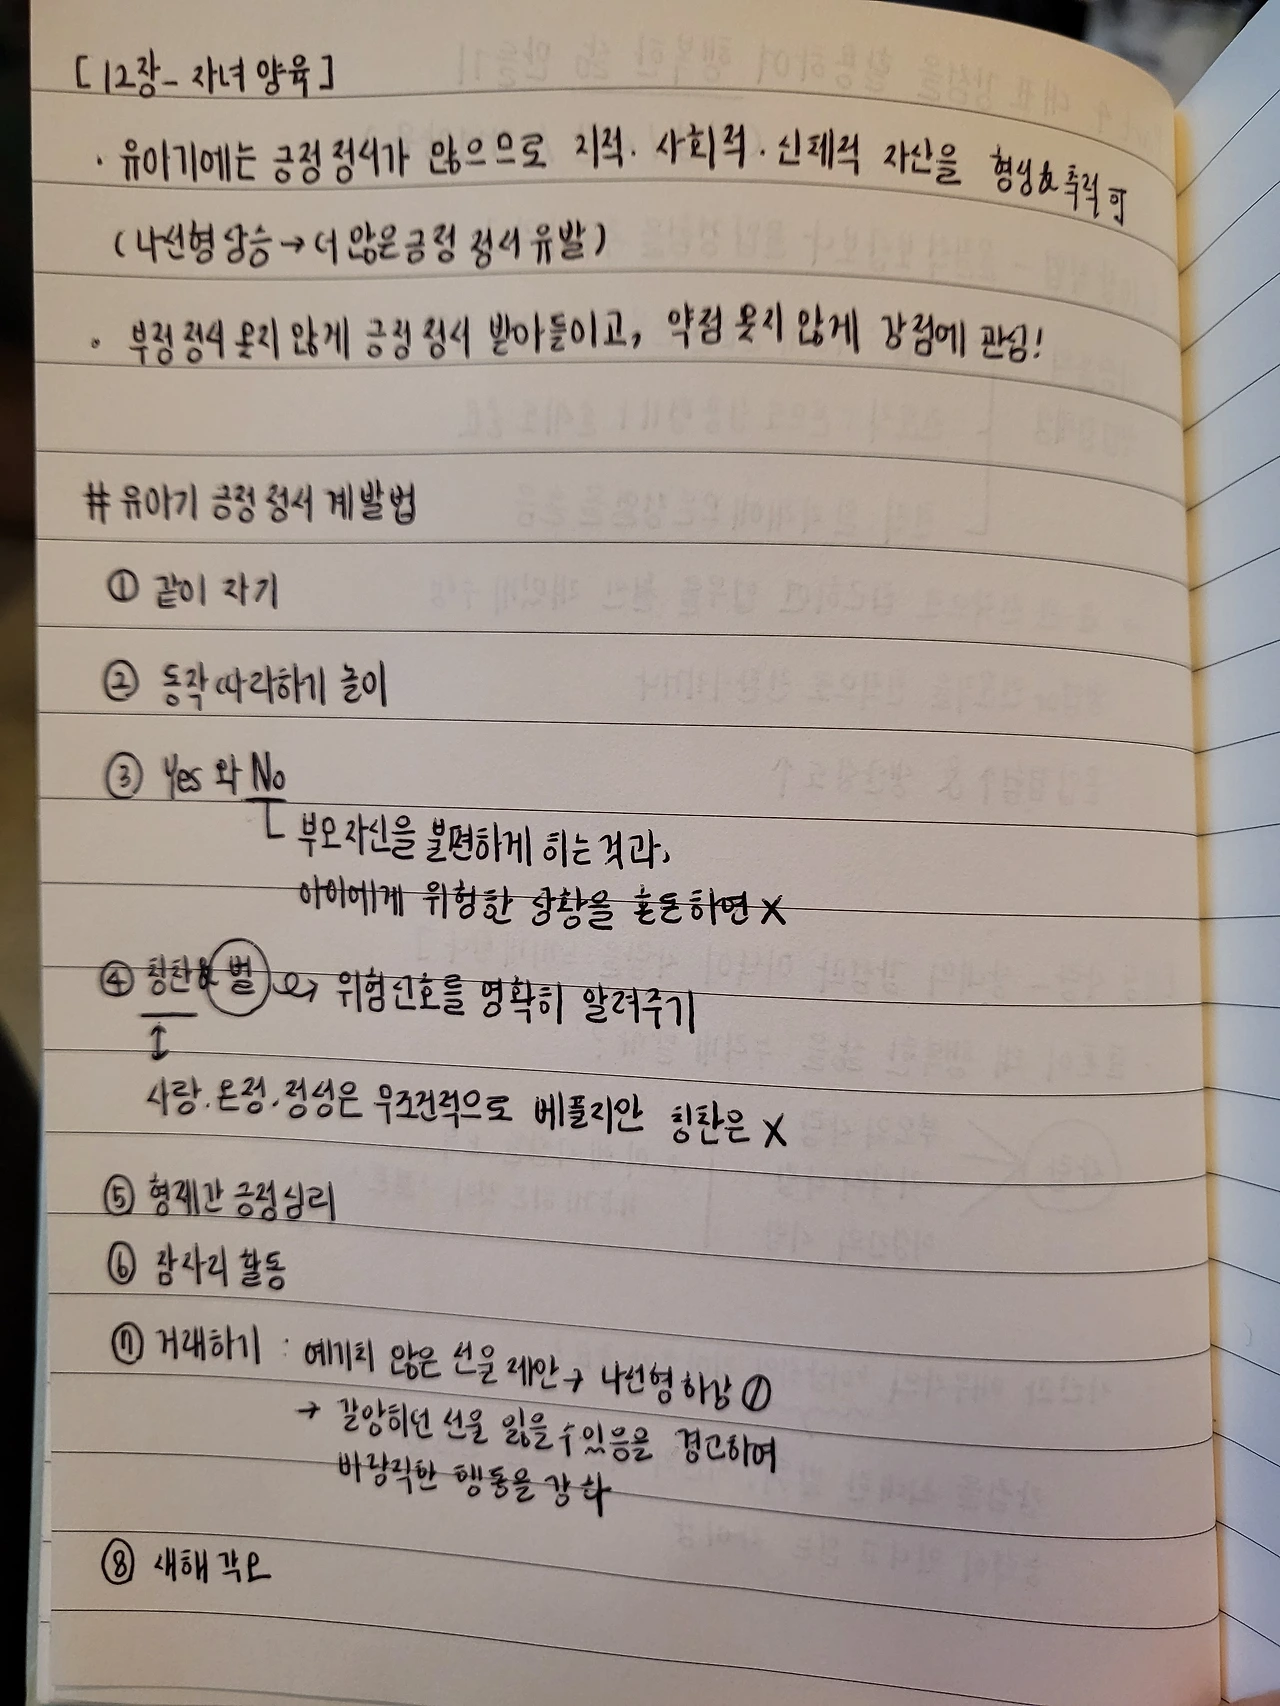 [ 12장 - 자녀 양육 ]
· 유아기에는 긍정 정서가 많으므로 지적 · 사회적 · 신체적 자산을 형성 & 축적 可
( 나선형 상승 → 더 많은 긍정 정서 유발 )
· 부정 정서 못지 않게 긍정 정서 받아들이고, 약점 못지 않게 강점에 관심!
# 유아기 긍정 정서 계발법
① 같이 자기
② 동작 따라하기 놀이
③ Yes 와 No
부모 자신을 불편하게 하는 것과,
아이에게 위험한 상황을 혼돈하면 X
④ 칭찬 & 벌 → 위험신호를 명확히 알려주기
↕
사랑. 온정. 정성은 무조건적으로 베풀지만 칭찬은 X
⑤ 형제간 긍정심리
⑥ 잠자리 활동
⑦ 거래하기 : 예기치 않은 선물 제안 → 나선형 하강 ①
→ 갈망하던 선물 잃을 수 있음을 경고하여
바람직한 행동을 강화
⑧ 새해 각오